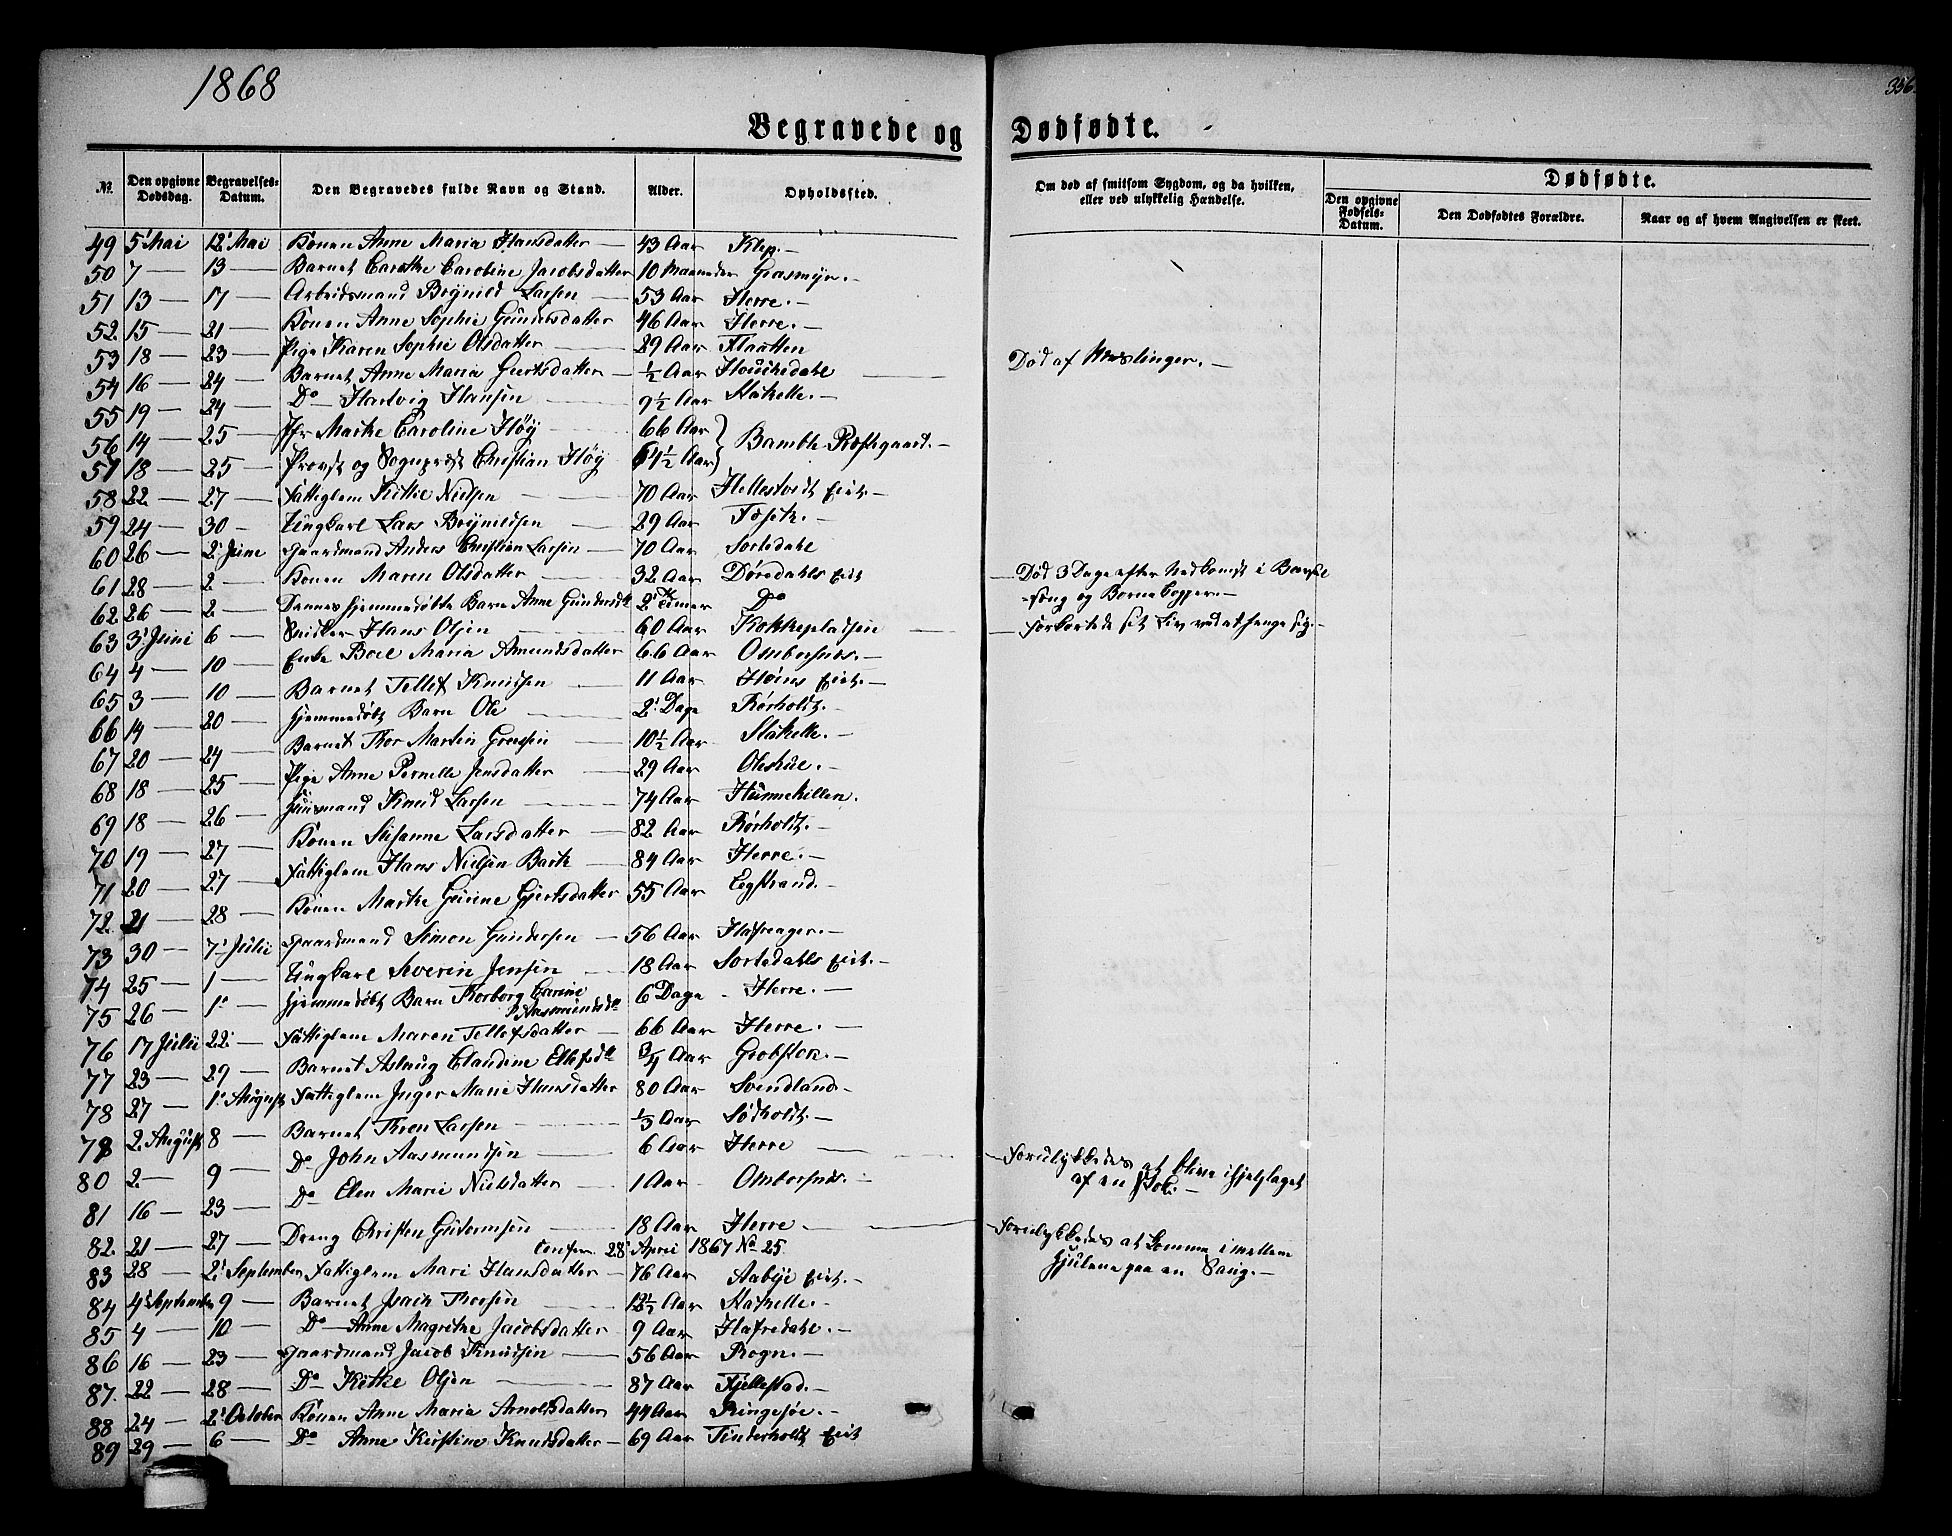 1868
356.
Begravede og Dødfødte.
No. Den opgivne Dødsdag. Begravelses-Datum. Den Begravedes fulde Navn og Stand. Alder. Opholdssted. Om død af smitsom Sygdom, og da hvilken, eller ved ulykkelig Hændelse. Dødfødte. Den opgivne Fødsels-Datum. Den Dødfødtes Forældre. Naar og af hvem Angivelsen er skeet.
49 5' Mai 12' Mai Konen Anne Maria Hansdatter — 43 Aar Klep. —
50 7 — 13 — Barnet Caroline Jacobsdatter 10 Maaneder Grasmyr. —
51 13 — 17 — Arbeidsmand Brynild Larsen — 53 Aar Herre. —
52. 15 — 21 — Konen Anne Sophie Gundersdatter 46 Aar Herre. —
53 18 — 23 — Pige Karen Sophie Olsdatter — 29 Aar Flaatten
54 16 — 24 — Barnet Anne Maria Giertsdatter — ½ Aar — Død af Meslinger. —
55 19 — 24 — Do — Hartvig Hansen — 9½ Aar Stathelle. —
56 14 — 25 — Jfr Marthe Caroline Høy — 66 Aar } Bamble Præstegaard. —
57 18 — 25 — Provst og Sognepræst Christian Høy 64½ Aar }
58 22 — 27 — Fattiglem Kittil Nielsen — 70 Aar Hellestvedt Eiet —
59 24 — 30 — Ungkarl Lars Brynildsen — 29 Aar Foseth. —
60 26 — 2' June Gaardmand Anders Christian Larsen — 70 Aar Sortedahl
61 28 — 2 — Konen Maren Olsdatter — 32 Aar Dørdahls Eiet — Død 3 Dage efter Nedkomst i Barsel
62 26 — 2 — Dennes hjemmedøbte Barn Anne Gundersdtr 2' Timer Do -seng og Børnekopper. —
63 3' Juni 6 — Snidker Hans Olsen — 60 Aar Kokkepladsen — Forkortede sit Liv ved at hænge sig. —
64 4 — 10 — Enke Boel Maria Amundsdatter 66 Aar Ombordsnes. —
65 3 — 10 — Barnet Tellef Knudsen — 11 Aar Eiet. —
66 14 — 20 — hjemmedøbt Barn Ole — 2' Dage Rørholt. —
67 20 — 24 — Barnet Thor Martin — 10½ Aar Stathelle. —
68 18 — 25 — Pige Anne Pernelle Jensdatter — 29 Aar —
69 18 — 26 — Huusmand Knud Larsen — 74 Aar Hunnekillen.
70 19 — 27 — Konen Susanne Larsdatter — 82 Aar Rørholt. —
71 20 — 27 — Fattiglem Hans Nielsen Bach — 84 Aar Herre. —
72. 21 28 — Konen Marthe Gurine Gjertsdatter 55 Aar Eegstrand. —
73 30 — 7' Julii Gaardmand Simon Gundersen — 56 Aar Hafsager. —
74 25 — 1 — Ungkarl Severin Jensen — 18 Aar Sortedahls Eiet. —
75 26 — 1' — hjemmedøbt Barn Thorborg Carine Aasmundsdtr 6 Dage Herre. —
76 17 Julii 22' — Fattiglem Maren Tellefsdatter — 66 Aar Herre. —
77 23 — 29 — Barnet Aslaug Claudine Ellefsdtr ¾ Aar Grobsten. —
78 27 — 1' August Fattiglem Inger Marie Hansdatter 80 Aar Svendland —
79 2. August 8 — Barnet Thron Larsen — ⅓ Aar Sødholdt. —
80 2 — 9 — Do John Aasmundsen — 6 Aar Herre — Forulykkedes at blive ihjelslaget af en Stok. —
81 16 — 23 — Do Elen Marie Nielsdatter — 1 Aar Ombordsnes. —
82. 21 — 27 — Dreng Christen Gutormsen — 18 Aar Herre — Forulykkedes at komme imellem
confir. 28' April 1867 No 25 Hjulene paa en Saug. —
83 28 — 2' September Fattiglem Mari Hansdatter — 76 Aar Aabye Eiet. —
84 4' September 9 — Barnet Isach Thorsen — 12½ Aar Stathelle. —
85 4 — 10 — Do — Anne Magrethe Jacobsdatter — 9 Aar Hafredahl. —
86 16 — 23 — Gaardmand Jacob Knudsen — 56 Aar Rogn. —
87. 22 — 28 — Do Kittil Olsen — 87 Aar Fjellestad. —
88 24 — 2' October Konen Anne Maria Arnoldsdatter 44 Aar Ringsjøe. —
89 29 — 6 — Do Anne Kirstine Knudsdatter — 69 Aar Tinderholt Eiet